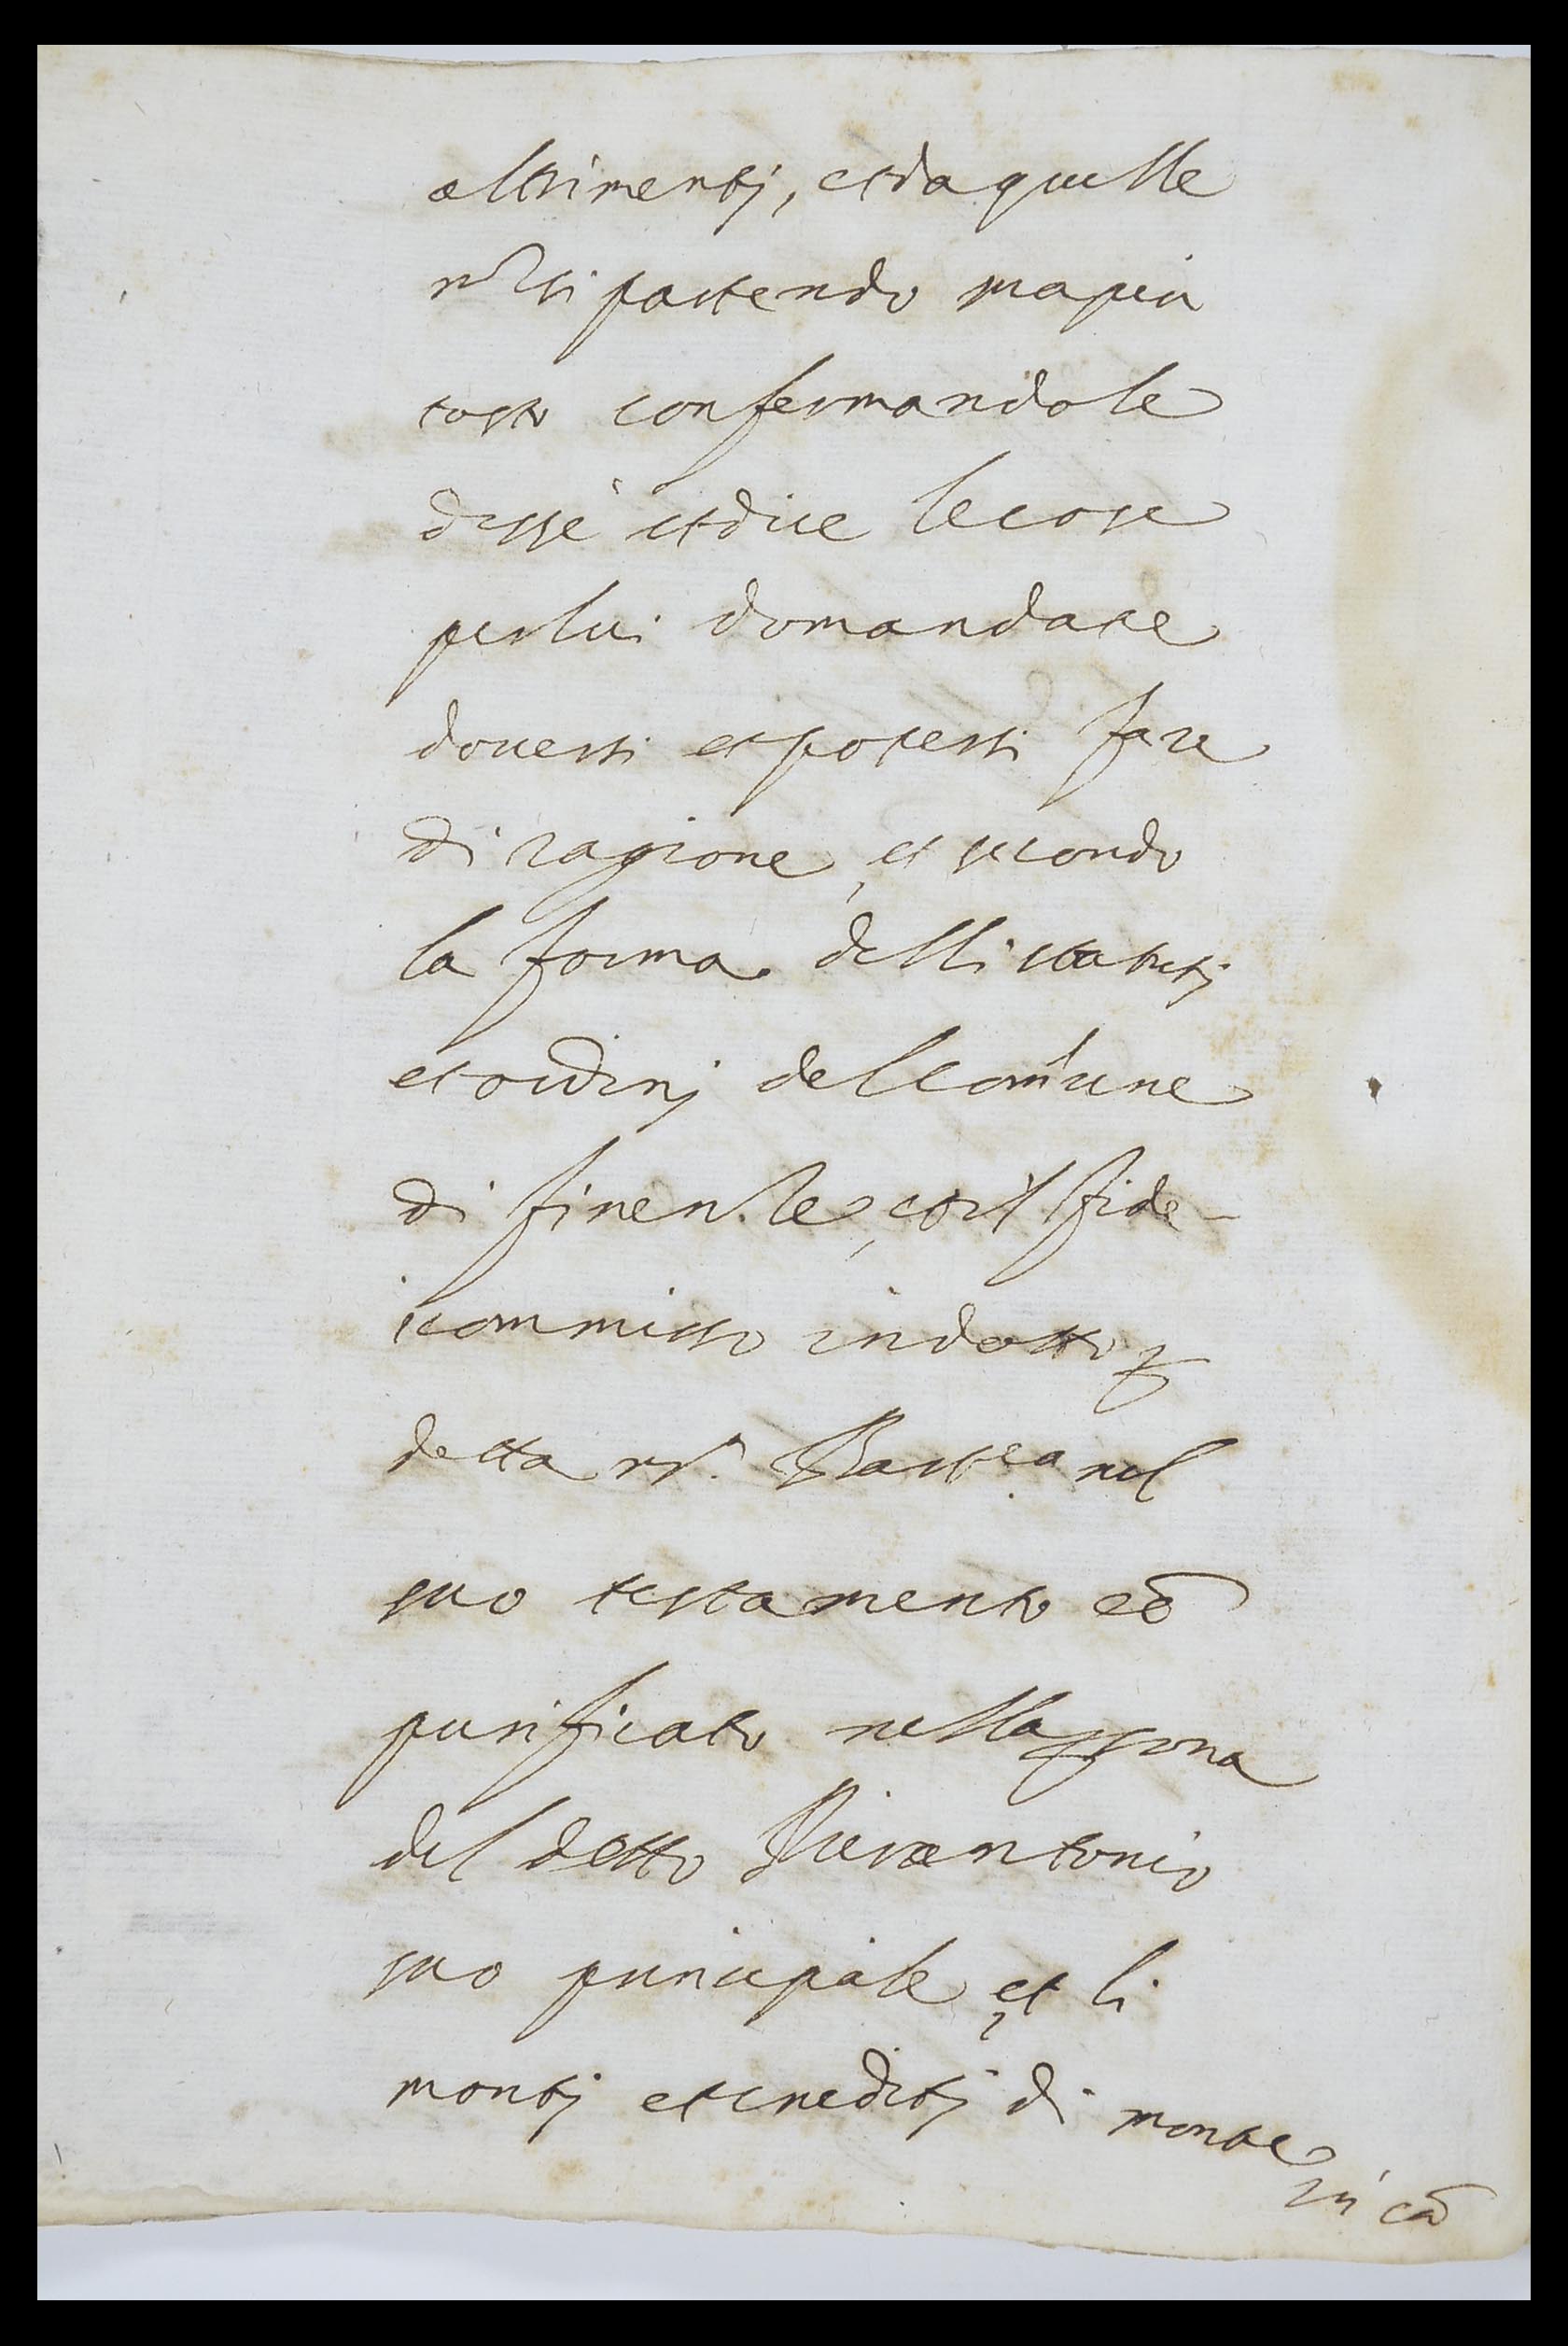 altrimentj, et da quelle
nō si partendo ma piu
tosto confermandole
disse et dice le cose
per lui domandate
douersi et potersi fare
di ragione, et secondo
la forma delli statutj
et ordinj del comune
di firenze, cosi'l fide-
icommisso indotto ꝑ
detta mª. Bartᵉᵃ nel
suo testamento eō
purificato nella ꝑsona
del detto Pierantonio
suo principale et li
montj et creditj di monte
in cā